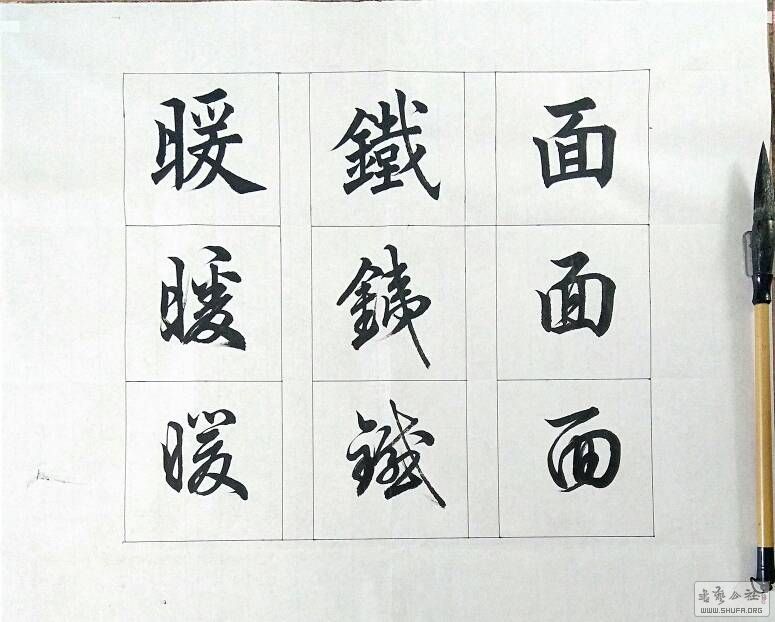 面面面
鐵銕鐵
暖暖暖
書藝公社
WWW.SHUFA.ORG